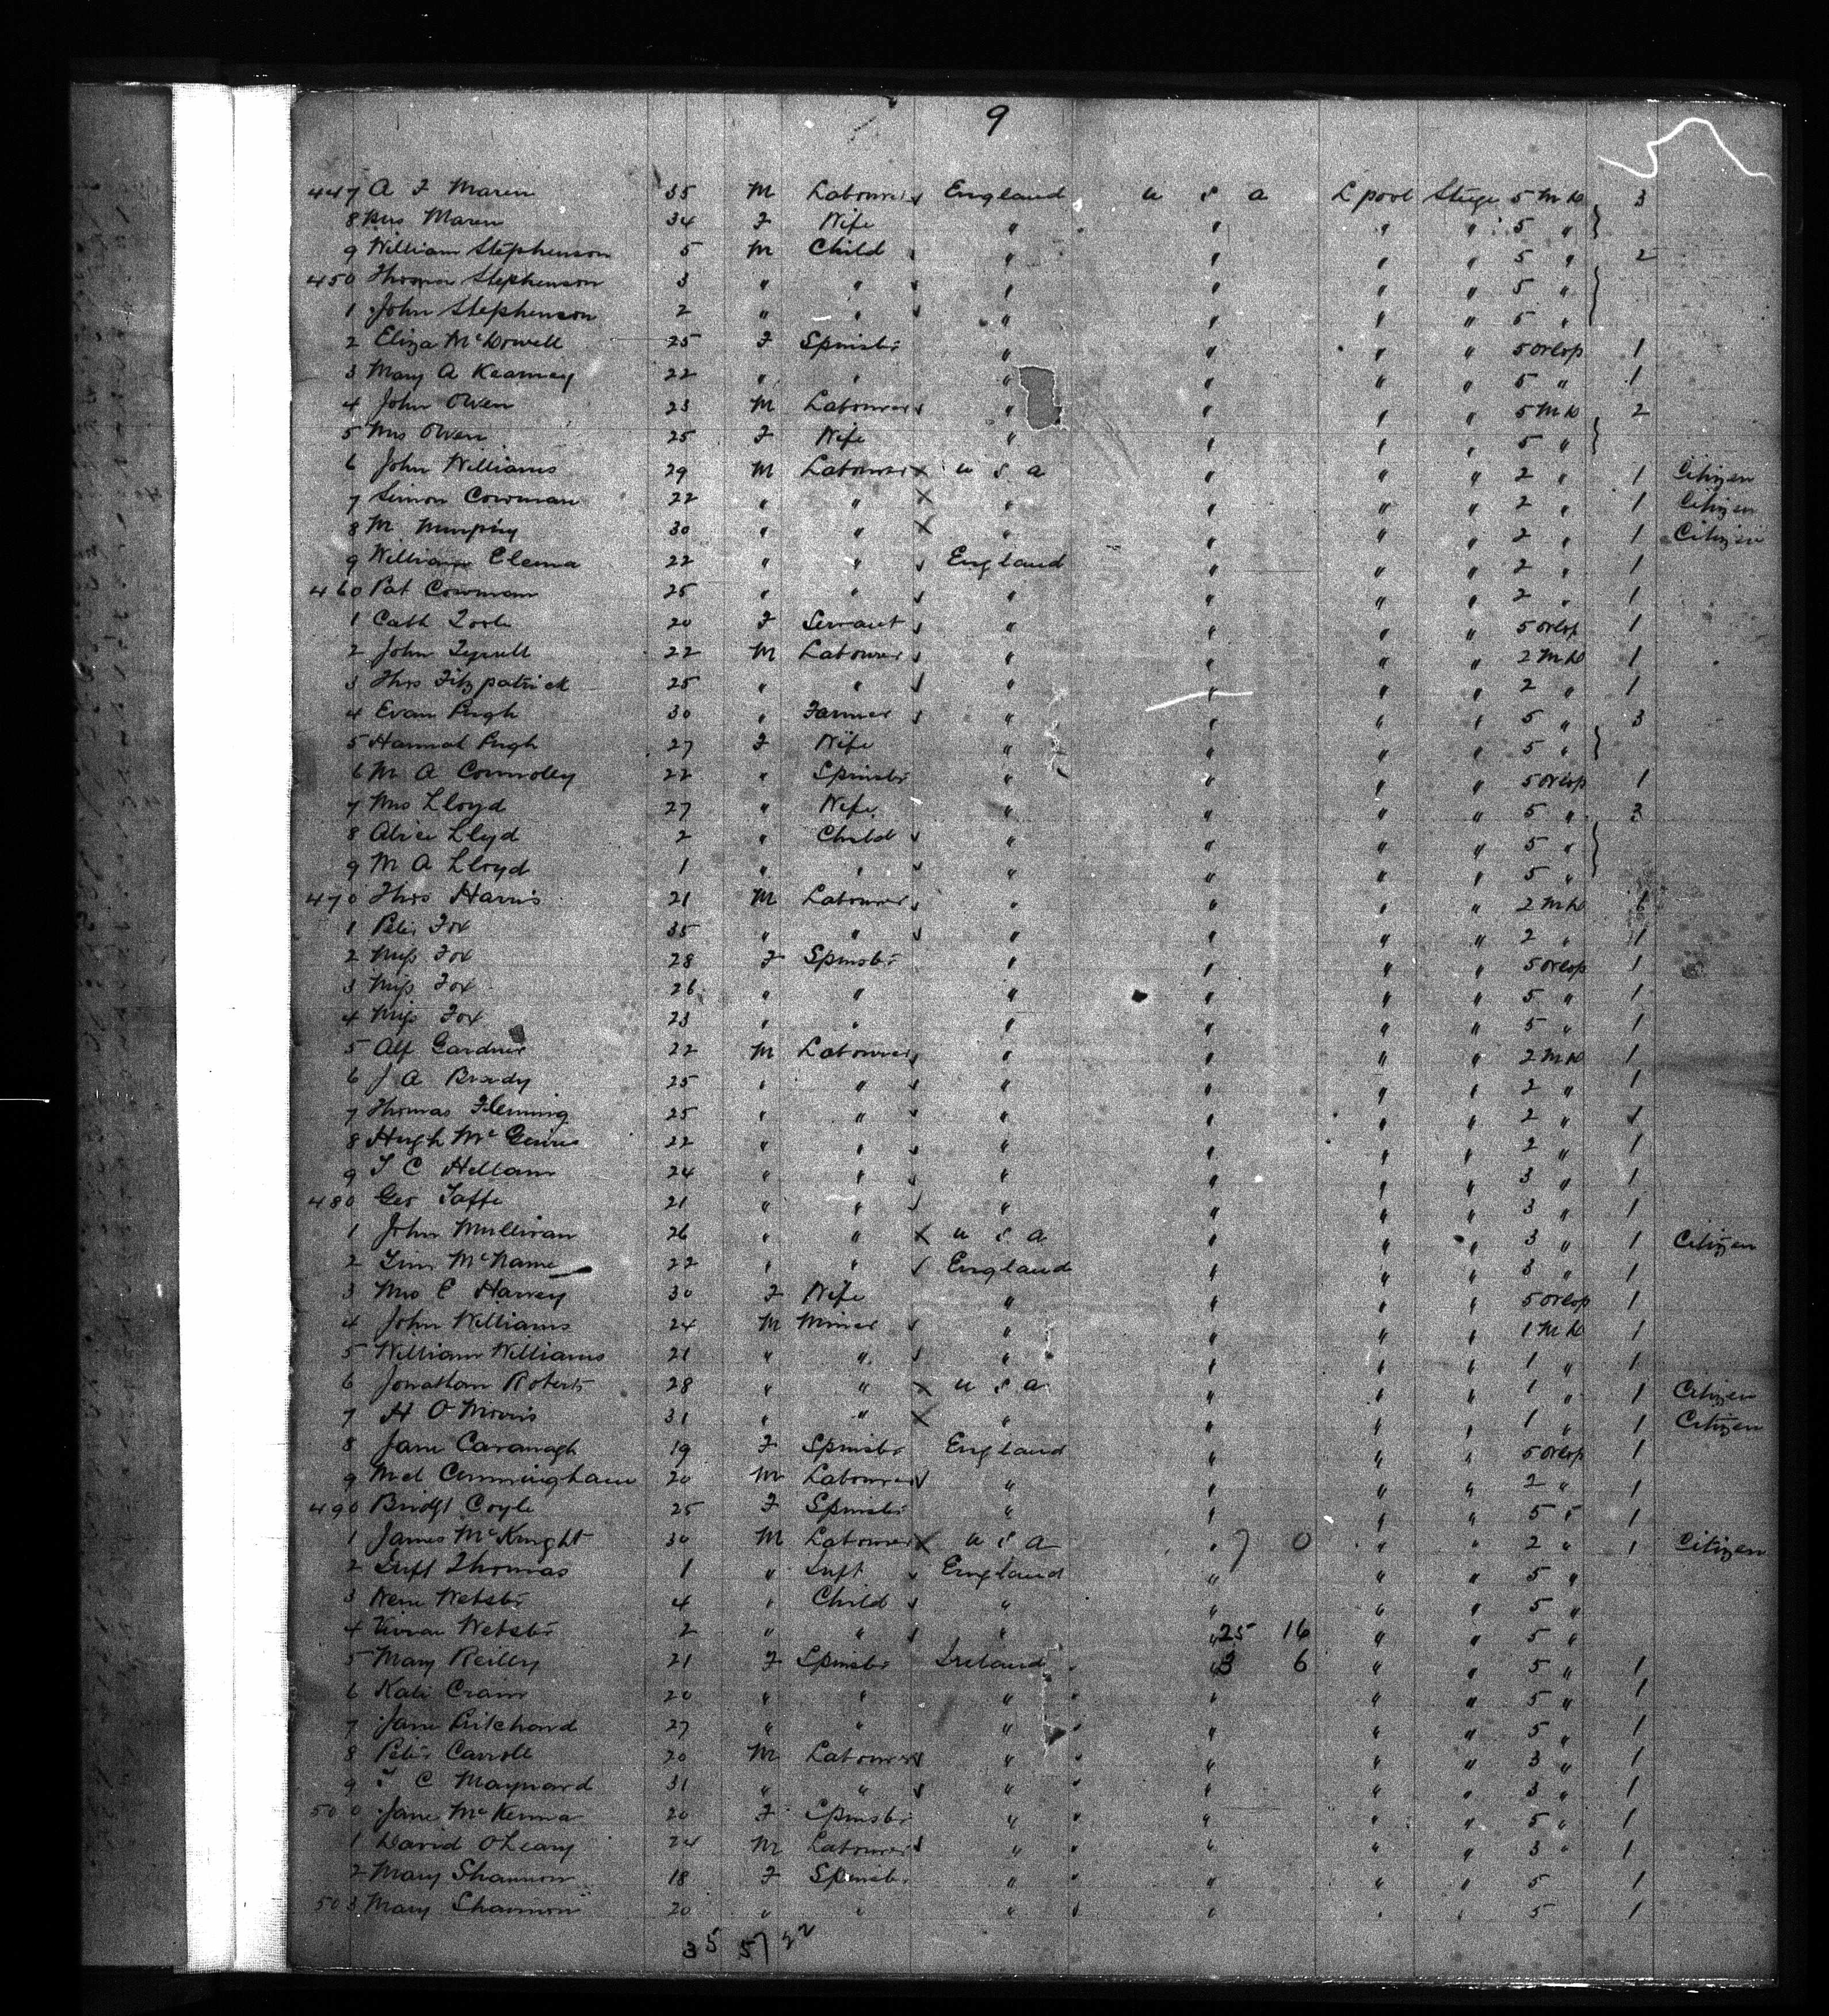 9
447 A F Maren 35 M Labourer England U S A Lpool Stege 5 M D 3
8 Mrs Maren 34 F Wife " " " " 5 "
9 William Stephenson 5 M Child " " " " 5 " 2
450 Thomas Stephenson 3 " " " " " " 5 "
1 John Stephenson 2 " " " " " " 5 "
2 Eliza McDowell 25 F Spinster " " " " 5 Orlop 1
3 Mary A Kearney 22 " " " " " " 5 " 1
4 John Owen 23 M Labourer " " " " 5 M D 2
5 Mrs Owen 25 F Wife " " " " 5 "
6 John Williams 29 M Labourer x U S A " " " 2 " 1 Citizen
7 Simon Cowman 22 " " x " " " " 2 " 1 Citizen
8 M Murphy 30 " " x " " " " 2 " 1 Citizen
9 William Clema 22 " " England " " " 2 " 1
460 Pat Cowman 25 " " " " " " 2 " 1
1 Cath Toole 20 F Servant " " " " 5 Orlop 1
2 John Tyrrell 22 M Labourer " " " " 2 M D 1
3 Thos Fitzpatrick 25 " " " " " " 2 " 1
4 Evan Pugh 30 " Farmer " " " " 5 " 3
5 Hannah Pugh 27 F Wife " " " " 5 "
6 M A Connolly 22 " Spinster " " " " 5 Orlop 1
7 Mrs Lloyd 27 " Wife " " " " 5 " 3
8 Alice Llyd 2 " Child " " " " 5 "
9 M A Lloyd 1 " " " " " " 5 "
470 Thos Harris 21 M Labourer " " " " 2 M D 1
1 Peter Fox 35 " " " " " " 2 " 1
2 Miss Fox 28 F Spinster " " " " 5 Orlop 1
3 Miss Fox 26 " " " " " " 5 " 1
4 Miss Fox 23 " " " " " " 5 " 1
5 Alf Gardner 22 M Labourer " " " " 2 M D 1
6 J A Brady 25 " " " " " " 2 " 1
7 Thomas Fleming 25 " " " " " " 2 " 1
8 Hugh McGinnis 22 " " " " " " 2 " 1
9 T C Hellam 24 " " " " " " 3 " 1
480 Geo Taffe 21 " " " " " " 3 " 1
1 John Mullivan 26 " " x U S A " " " 3 " 1 Citizen
2 Tim McName 22 " " England " " " 3 " 1
3 Mrs E Harvey 30 F Wife " " " " 5 Orlop 1
4 John Williams 24 M Miner " " " " 1 M D 1
5 William Williams 21 " " " " " " 1 " 1
6 Jonathan Roberts 28 " " x U S A " " " 1 " 1 Citizen
7 H O Morris 31 " " x " " " " 1 " 1 Citizen
8 Jane Cavanagh 19 F Spinster England " " " 5 Orlop 1
9 Mcl Cunningham 20 M Labourer " " " " 2 " 1
490 Bridgt Coyle 25 F Spinster " " " " 5 " 1
1 James McKnight 30 M Labourer x U S A " 7 0 " " 2 " 1 Citizen
2 Inft Thomas 1 " Inft England " " " 5 "
3 Webster 4 " Child " " " " 5 "
4 Vivian Webster 2 " " " " 25 16 " " 5 "
5 Mary Reilly 21 F Spinster Ireland " 3 6 " " 5 " 1
6 Kate Crain 20 " " " " " " 5 " 1
7 Jane Pritchard 27 " " " " " " 5 " 1
8 Peter Carroll 20 M Labourer " " " " 3 " 1
9 T C Maynard 31 " " " " " " 3 " 1
500 Jane McKenna 20 F Spinster " " " " 5 " 1
1 David OLeary 24 M Labourer " " " " 3 " 1
2 Mary Shannon 18 F Spinster " " " " 5 1
503 Mary Shannon 20 " " " " " " 5 1
35 57